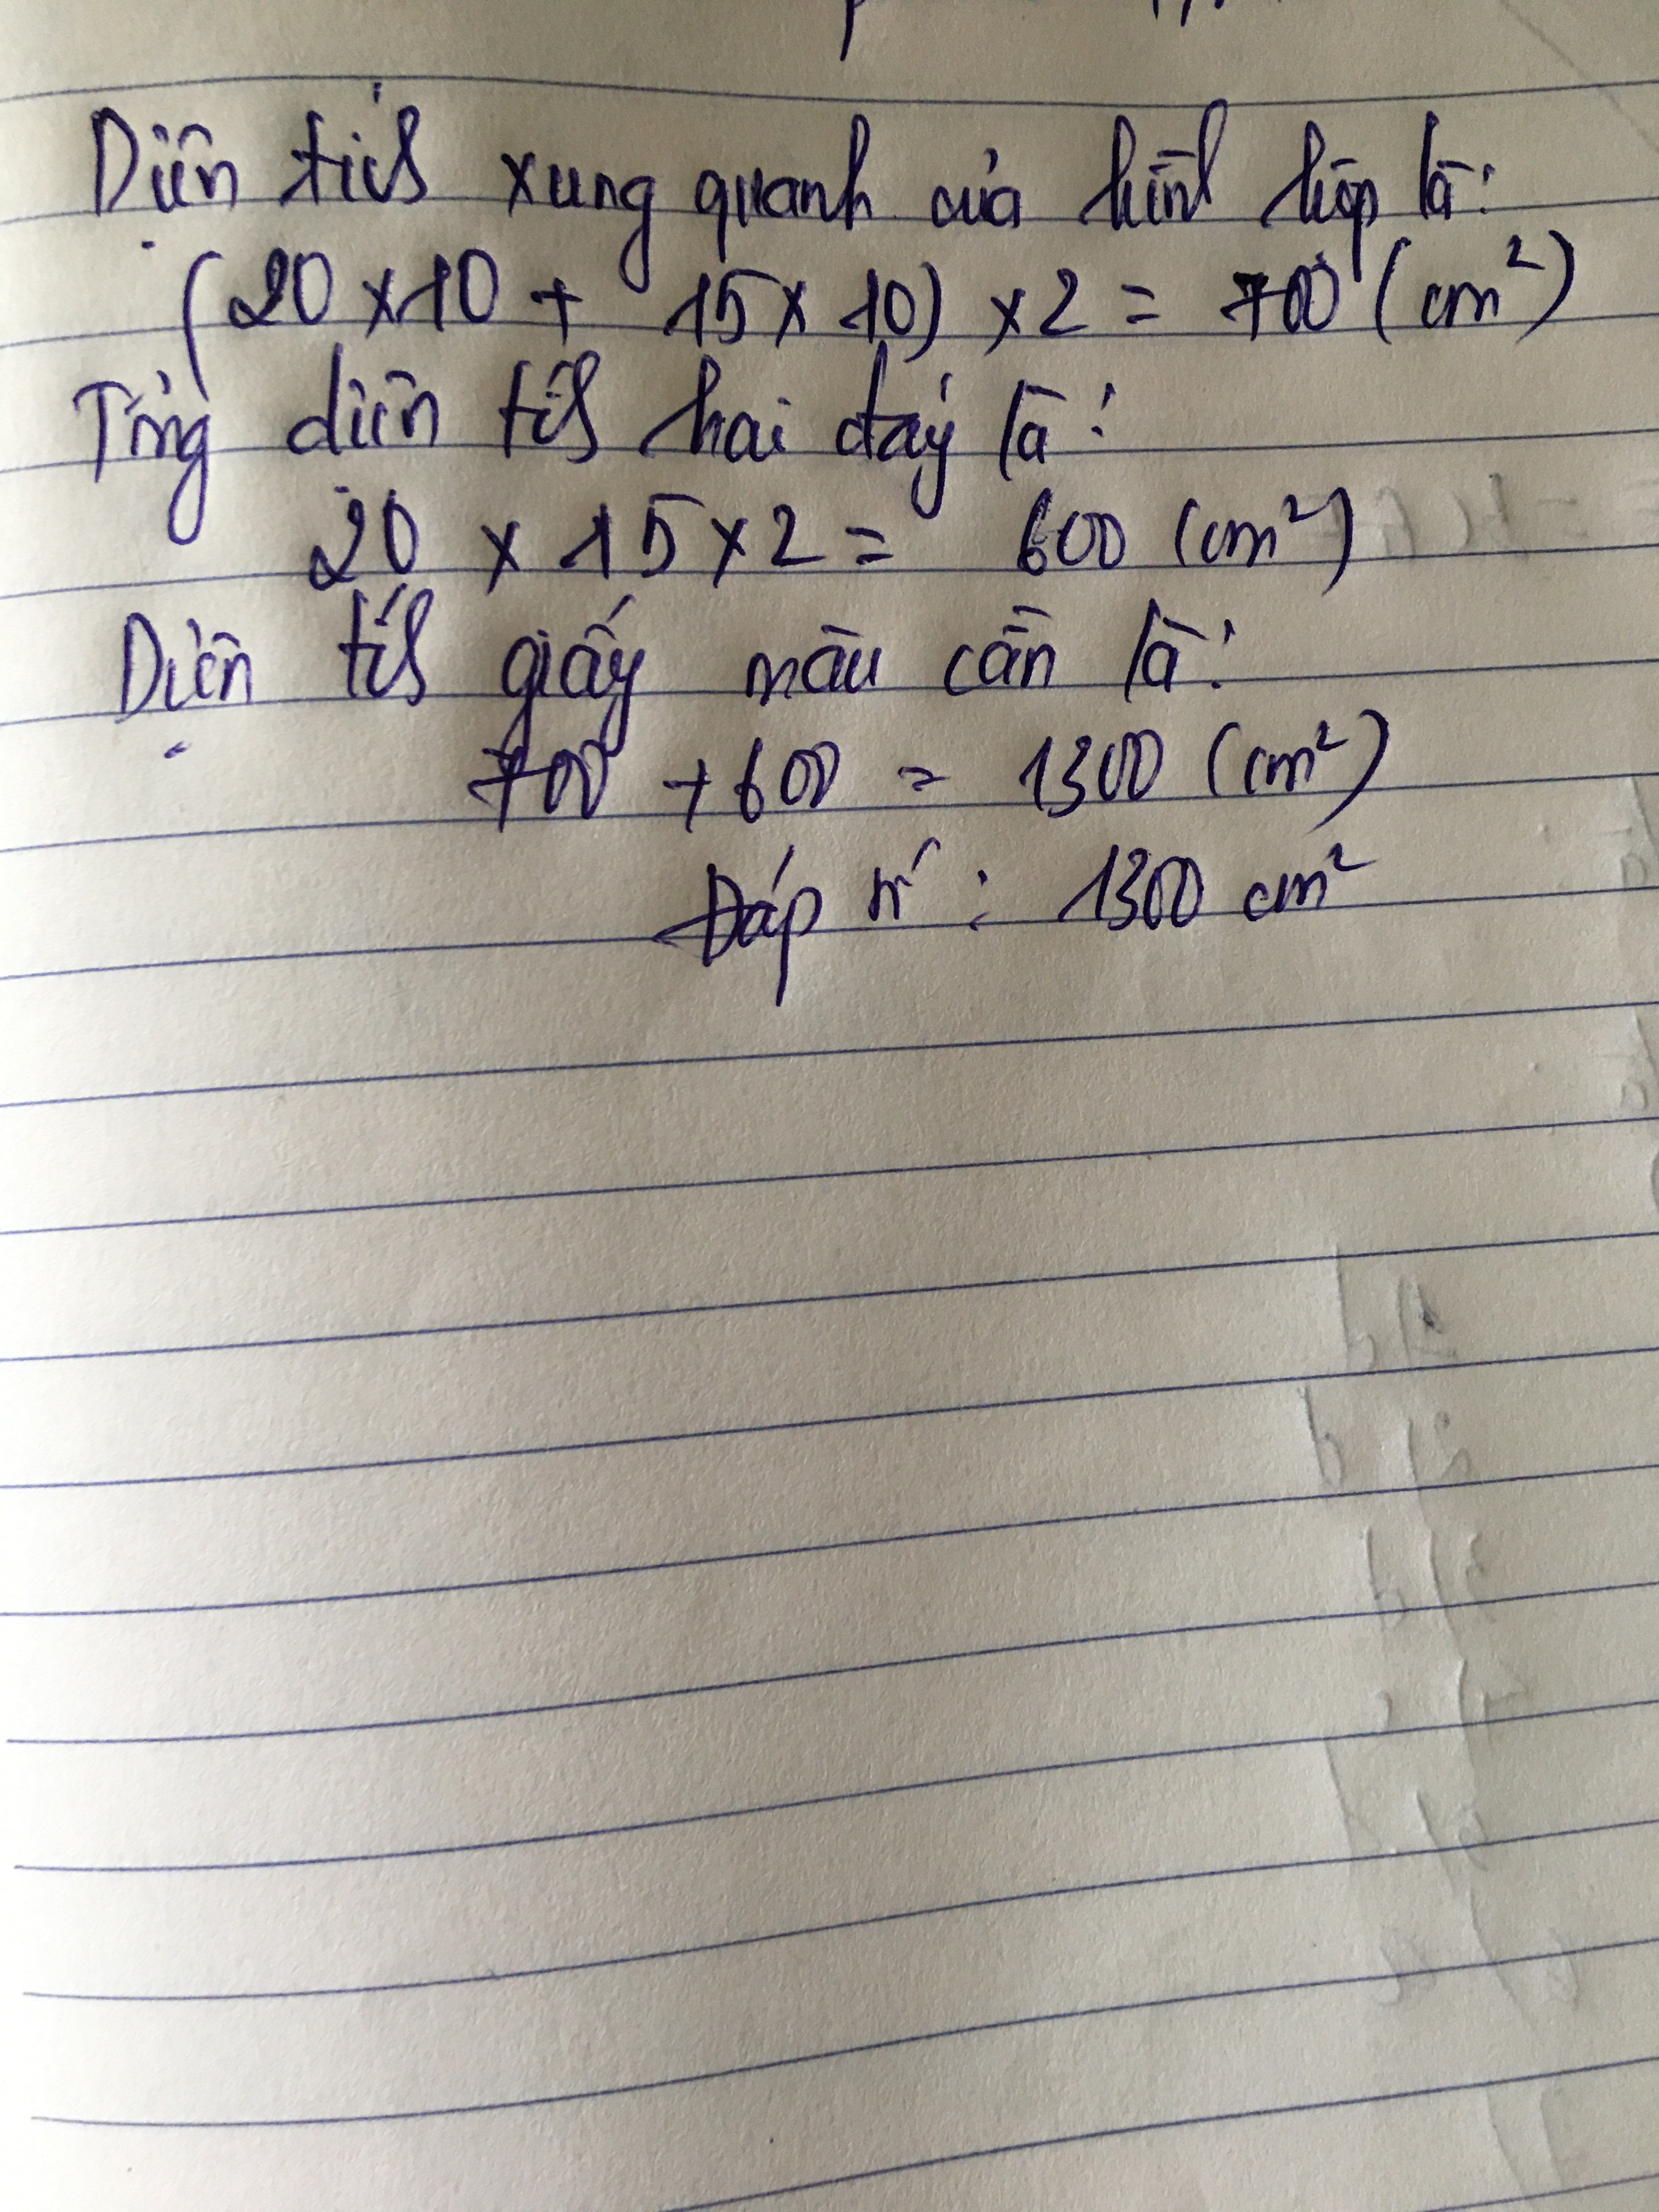 Diện tích xung quanh của hình hộp là:
(20 x 10 + 15 x 10) x 2 = 700 (cm²)
Tổng diện tích hai đáy là:
20 x 15 x 2 = 600 (cm²)
Diện tích giấy màu cần là:
700 + 600 = 1300 (cm²)
Đáp số: 1300 cm²